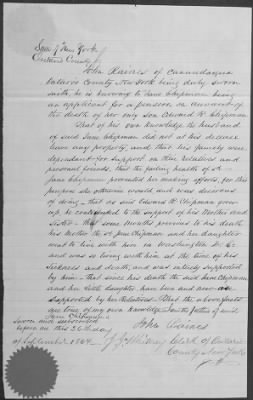 State of New York
Ontario County
John Raines of Canandaigua
Ontario County New York being duly sworn
saith he is knowing to Jane Chipman being
an applicant for a pension on account
of the death of her only son Edward H. Chipman
That of his own knowledge the husband
of said Jane Chipman did not at his decease
leave any property, and that his family were
dependant for support on their relatives and
personal friends, that the failing health of
Jane Chipman prevented her making efforts, for this
purpose she otherwise would and was desirous
of doing - that as said Edward H. Chipman grew
up he contributed to the support of his Mother and
Sister - that some months previous to his death
his Mother the sd Jane Chipman and her daughter
went to live with him in Washington D. C.
and was so living with him at the time of his
sickness and death, and was solely supported
by him - that since his death the said Jane Chipman
and her daughter have been and now
supported by her Relatives. That the above facts
are true of my own knowledge the father of said
Jane Chipman
Sworn and subscribed
before me this 26th day
of September 1864
John Raines
Clerk of Ontario
County New York